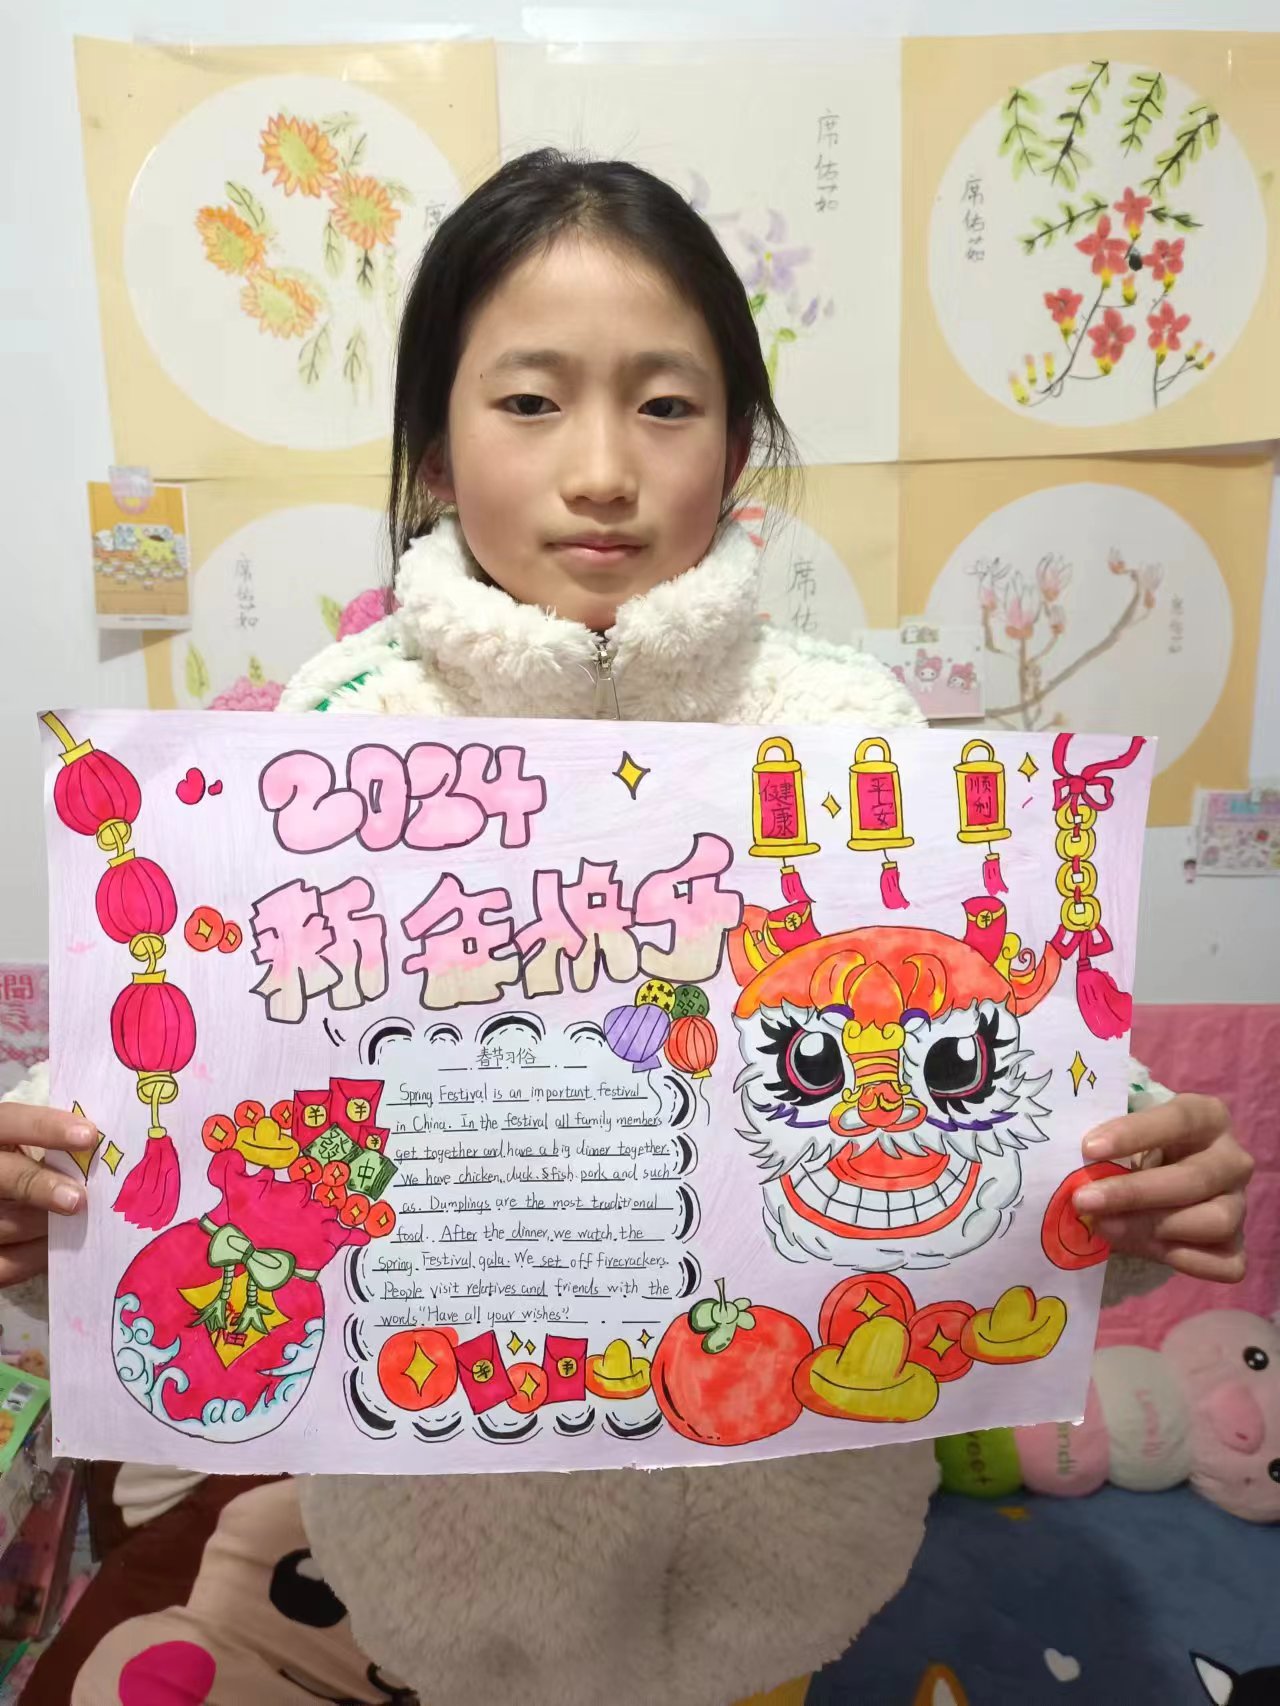 席佑茹
席佑茹
席
席佑茹
席佑
2024
新年快乐
健康
平安
顺利
春节习俗
Spring Festival is an important festival
in China. In the festival all family members
get together and have a big dinner together.
We have chicken, duck. fish. pork and such
as. Dumplings are the most traditional
food. After the dinner, we watch the
Spring Festival gala. We set off firecrackers.
People visit relatives and friends with the
words."Have all your wishes".
中